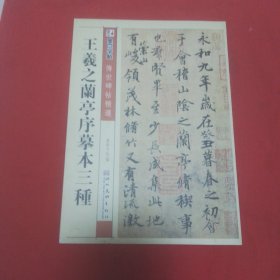 永和九年歲在癸丑暮春之初會
于會稽山陰之蘭亭脩禊事
也羣賢畢至少長咸集此地
有崇山峻領茂林脩竹又有清流激
傳世碑帖精選
王羲之蘭亭序摹本三種